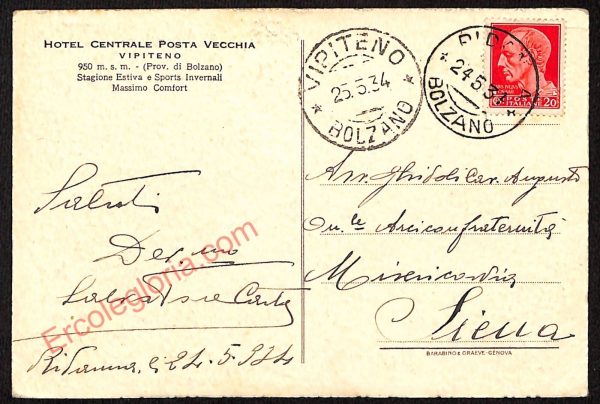 HOTEL CENTRALE POSTA VECCHIA
VIPITENO
950 m. s. m. - (Prov. di Bolzano)
Stagione Estiva e Sports Invernali
Massimo Comfort
VIPITENO
25.5.34
BOLZANO
24.5.34
BOLZANO
POSTE
ITALIANE 20
Saluti
Dev.mo
Salvatore
Ridanna, 24-5-934
Avv. Ghidoli Cav. Augusto
On.le Arciconfraternita
Misericordia
Siena
BARABINO & GRAEVE-GENOVA
Ercolegloria.com